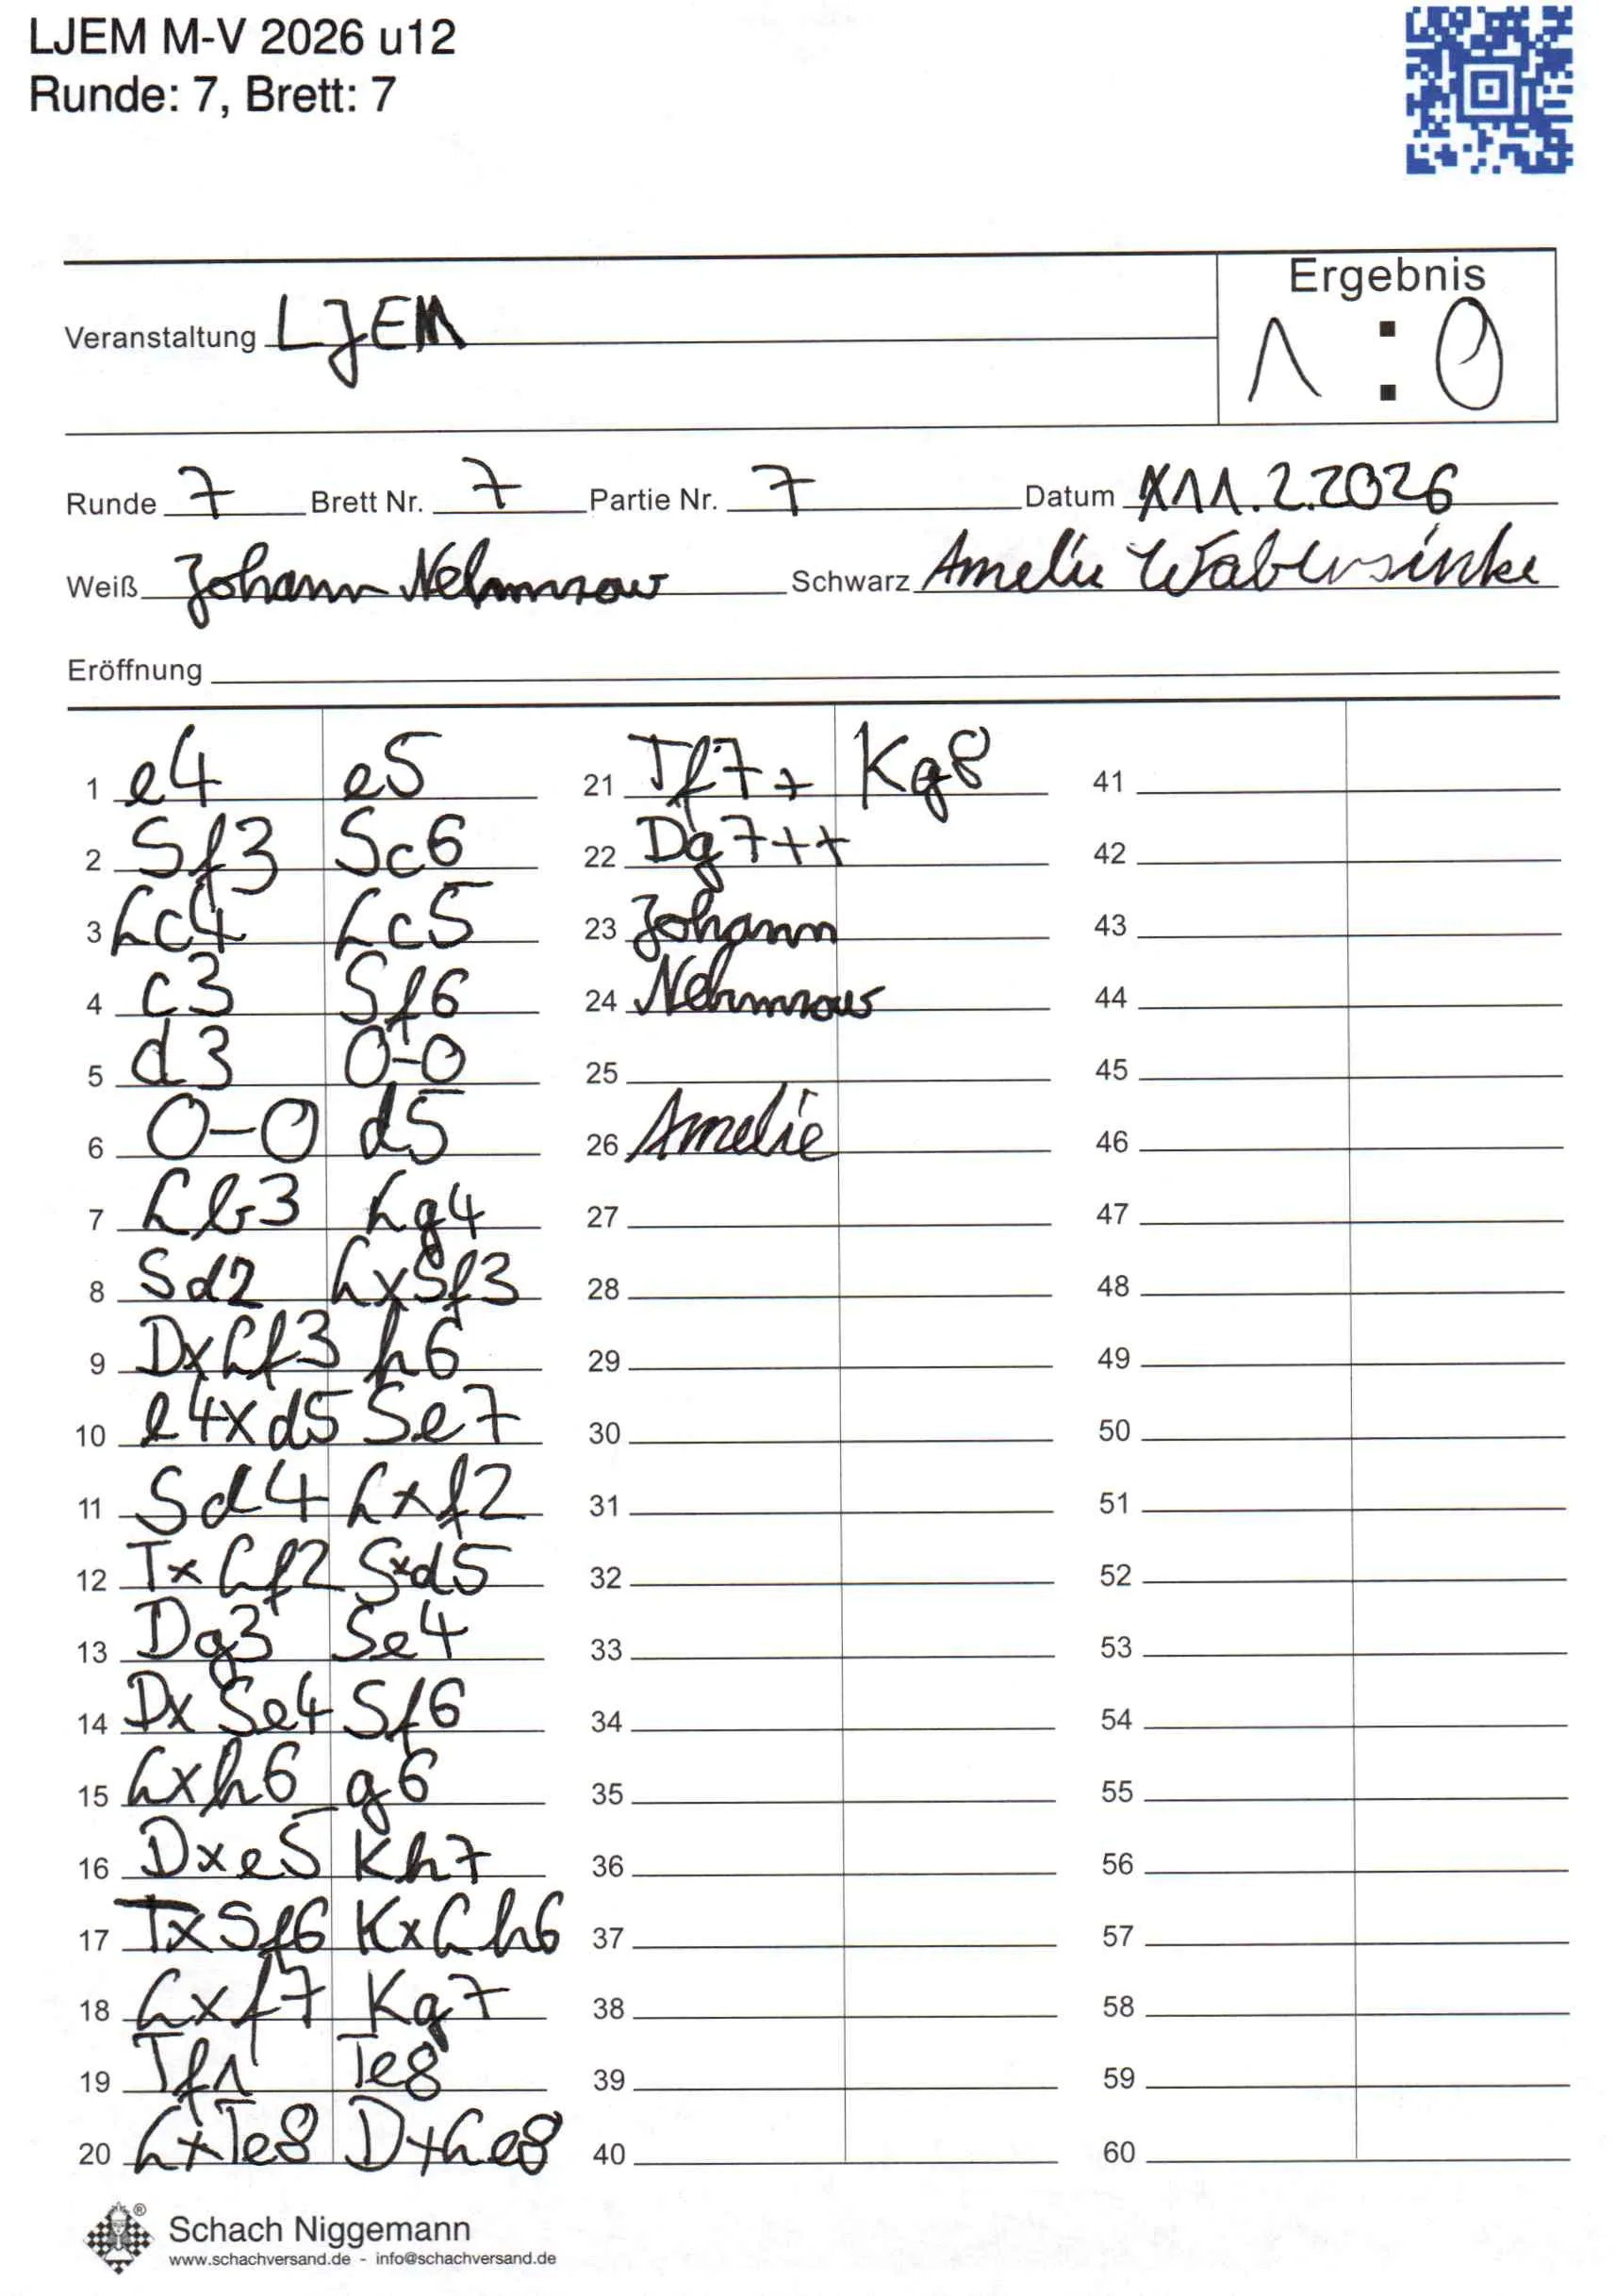 LJEM M-V 2026 u12
Runde: 7, Brett: 7
Ergebnis
Veranstaltung LJEM
1 : 0
Runde 7 Brett Nr. 7 Partie Nr. 7 Datum 11.2.2026
Weiß Johann Nehmzow Schwarz Amelie
Eröffnung
1 e4 e5 21 Tf7+ Kg8 41
2 Sf3 Sc6 22 Dg7++ 42
3 Lc4 Lc5 23 Johann 43
4 c3 Sf6 24 Nehmzow 44
5 d3 0-0 25 45
6 0-0 d5 26 Amelie 46
7 Lb3 Lg4 27 47
8 Sd2 LxSf3 28 48
9 DxLf3 h6 29 49
10 e4xd5 Se7 30 50
11 Sd4 Lxf2 31 51
12 TxLf2 Sxd5 32 52
13 Dg3 Se4 33 53
14 DxSe4 Sf6 34 54
15 Lxh6 g6 35 55
16 Dxe5 Kh7 36 56
17 TxSf6 KxLh6 37 57
18 Lxf7 Kg7 38 58
19 Tf1 Te8 39 59
20 LxTe8 DxLe8 40 60
®
Schach Niggemann
www.schachversand.de - info@schachversand.de